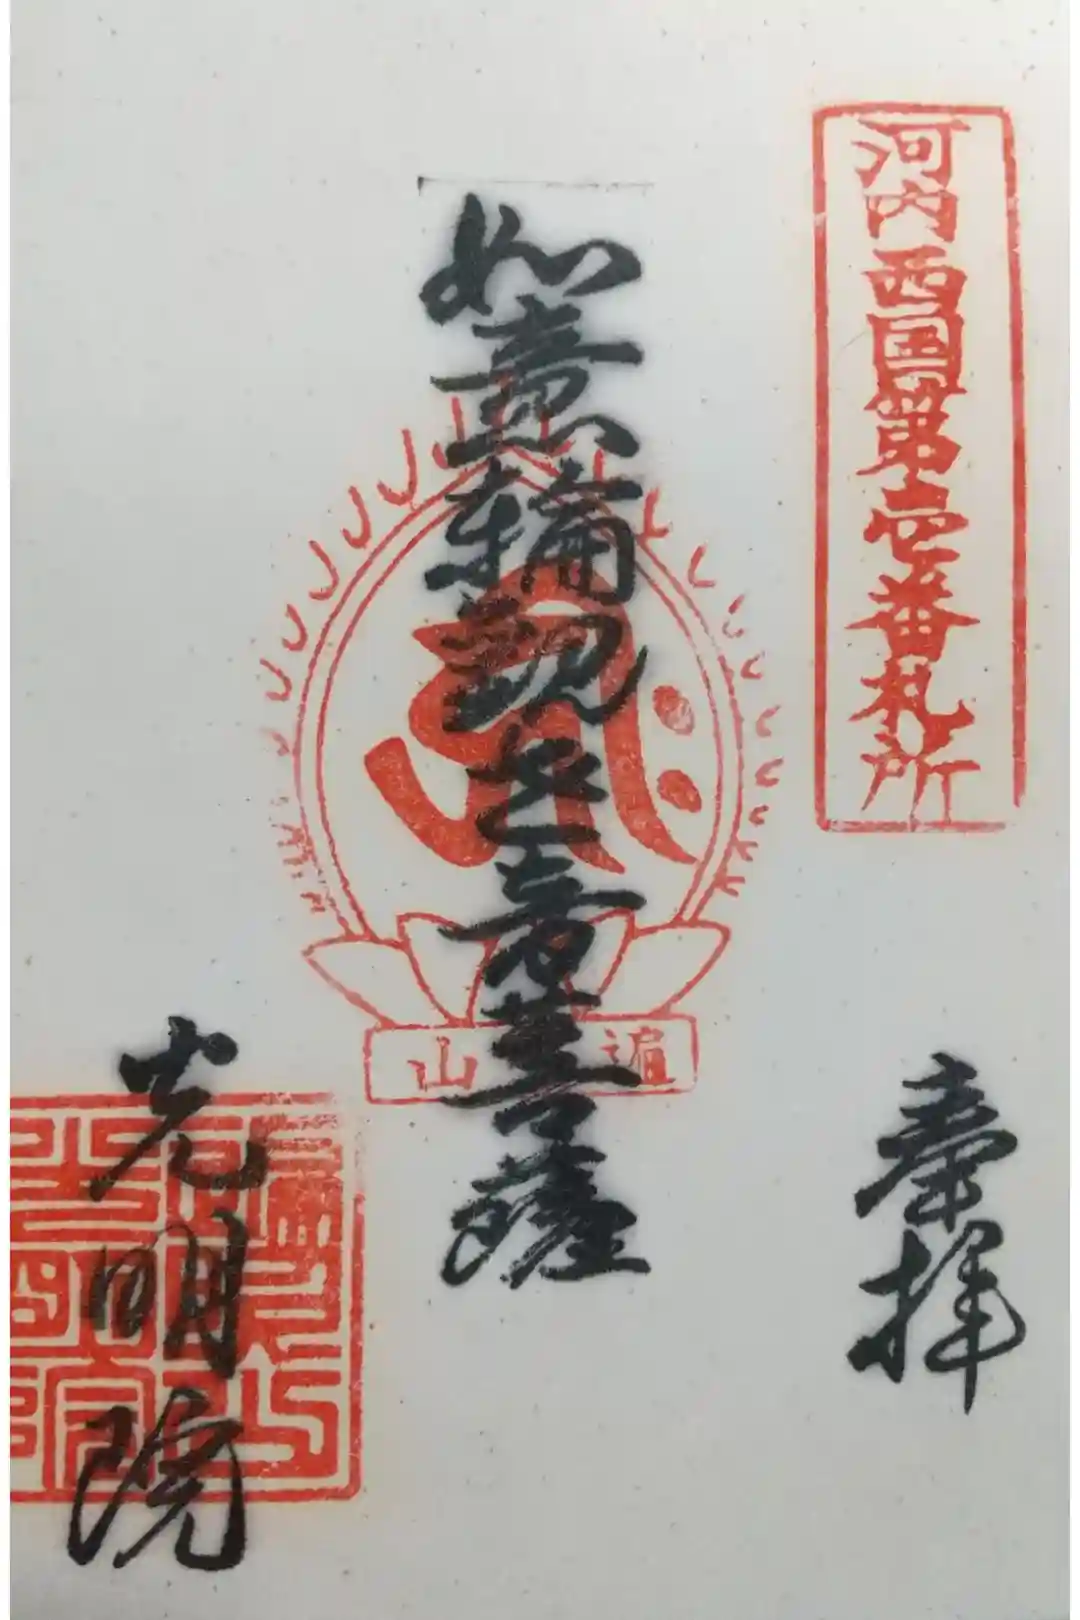 河内西国第壱番札所
奉拝
如意輪観世音菩薩
遍 山
光明院